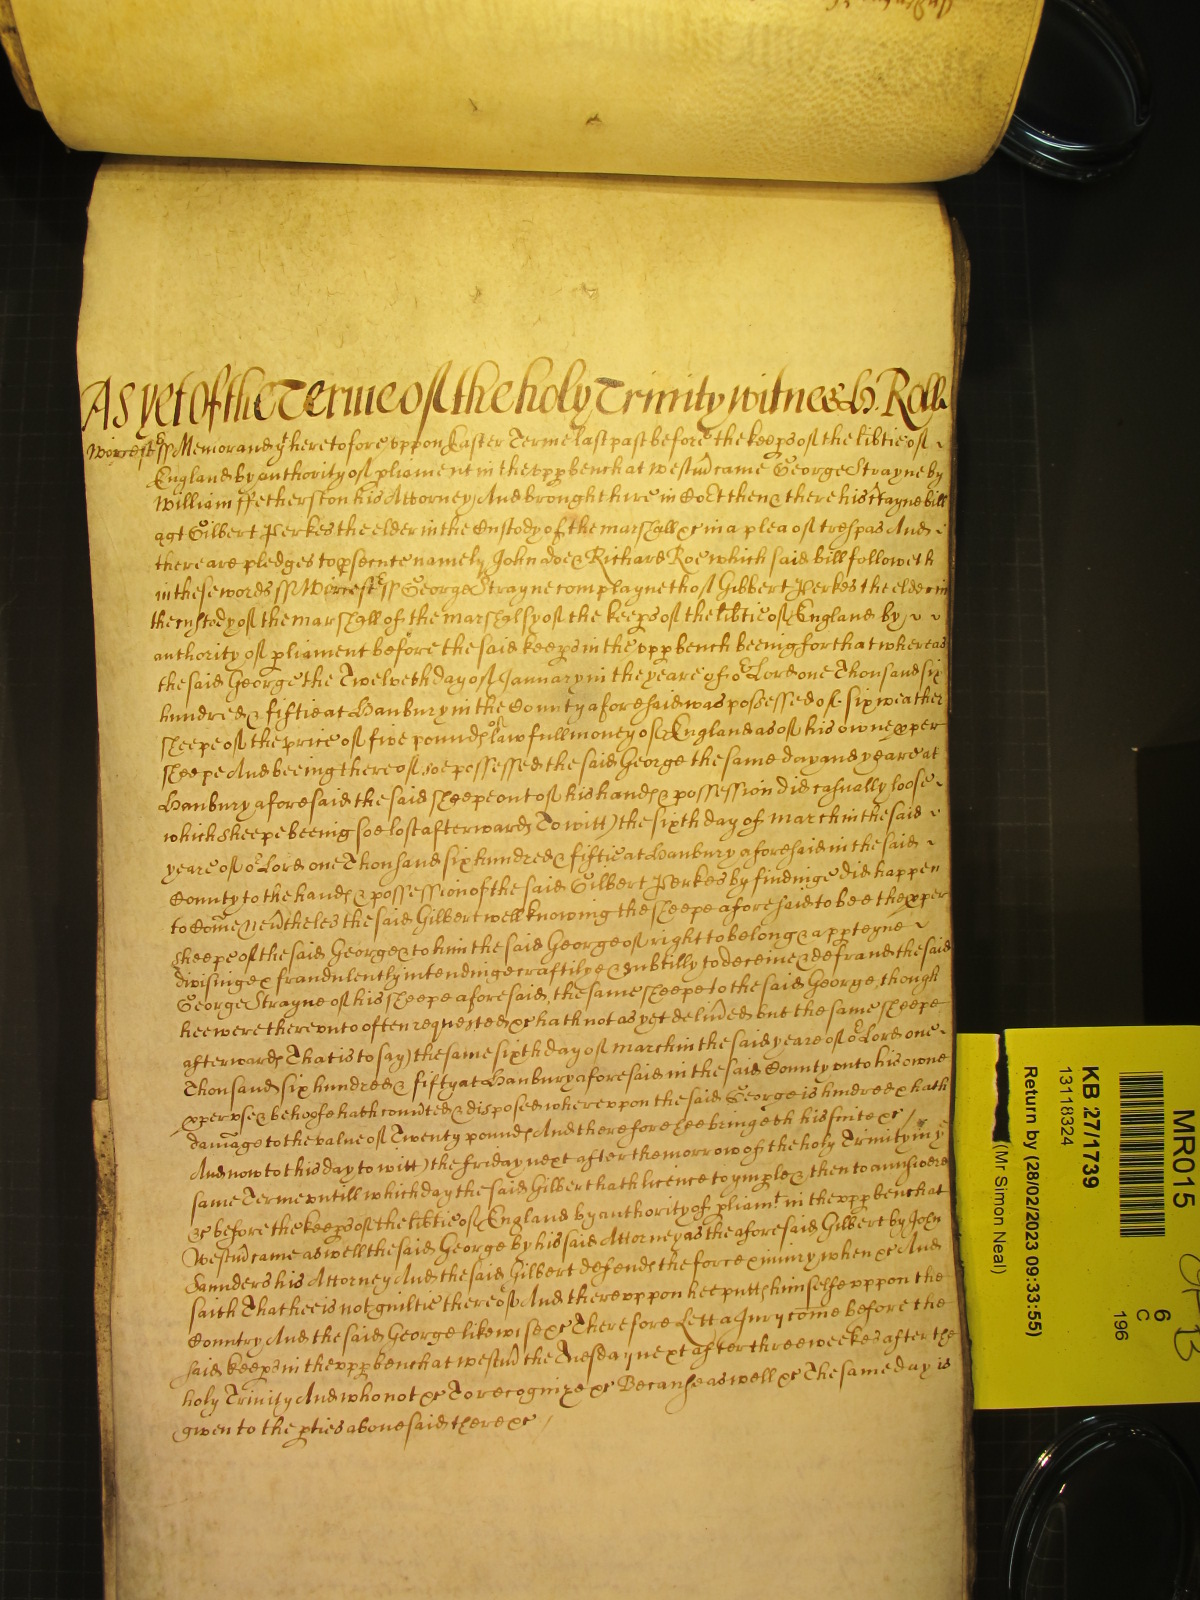 As yet of the Terme of the holy Trinity witnes H. Rolle
Worcestr ss Memorand yt heretofore uppon Easter Terme last past before the keeps of the libtie of
England by authority of pliament in the upp bench at Westmr came George Strayne by
William ffetherston his Attorney And brought here in Court then & there his bill
agt Gilbert Perkes the elder in the Custody of the marshall &c in a plea of trespas And
there are pledges to psecute namely John Doe & Richard Roe which said bill followeth
in these words ss Worcestr ss George Strayne complayneth of Gilbert Perkes the elder in
the custody of the marshall of the marshalsy of the keeps of the libtie of England by
authority of pliament before the said keeps in the upp bench beeing for that whereas
the said George the Twelveth day of January in the yeare of or Lord one Thousand six
hundred & fiftie at Hanbury in the County aforesaid was possessed of six weather
sheepe of the price of five pounds of lawfull money of England as of his owne pper
sheepe And beeing thereof soe possessed the said George the same day and yeare at
Hanbury aforesaid the said sheepe out of his hands & possession did casually loose
which sheepe beeing soe lost afterwards To witt) the sixth day of March in the said
yeare of or Lord one Thousand six hundred & fiftie at Hanbury aforesaid in the said
County to the hands & possession of the said Gilbert Perkes by findinge did happen
to Come Nevtheles the said Gilbert well knowing the sheepe aforesaid to bee the pper
sheepe of the said George & to him the said George of right to belong & appteyne
divisinge & fraudulently intendinge craftilye & subtilly to deceive & defraud the said
George Strayne of his sheepe aforesaid, the same sheepe to the said George, though
hee were thereunto often requested &c hath not as yet delived but the same sheepe
afterwards That is to say) the same sixth day of March in the said yeare of or Lord one
Thousand six hundred & fifty at Hanbury aforesaid in the said County unto his owne
pper use & behoofe hath convted & disposed whereuppon the said George is hindred & hath
damage to the value of Twenty pounds And therefore hee bringeth his suite &c /
And now to this day to witt) the friday next after the morrow of the holy Trinity in ye
same Terme untill which day the said Gilbert hath licence to ymple & then to aunswere
&c before the keeps of the libtie of England by authority of pliamt in the upp bench at
Westmr came as well the said George by his said Attorney as the aforesaid Gilbert by John
Saunders his Attorney And the said Gilbert defends the force & iniury when &c And
saith That hee is not guiltie thereof And thereuppon hee putts himselfe uppon the
Country And the said George likewise &c Therefore Lett a Jury come before the
said keeps in the upp bench at Westmr the Tuesday next after three weekes after the
holy Trinity And who not &c To recognize &c Because as well &c The same day is
given to the pties abovesaid there &c /
MR015
6
C
196
KB 27/1739
13118324
Return by (28/02/2023 09:33:55)
(Mr Simon Neal)